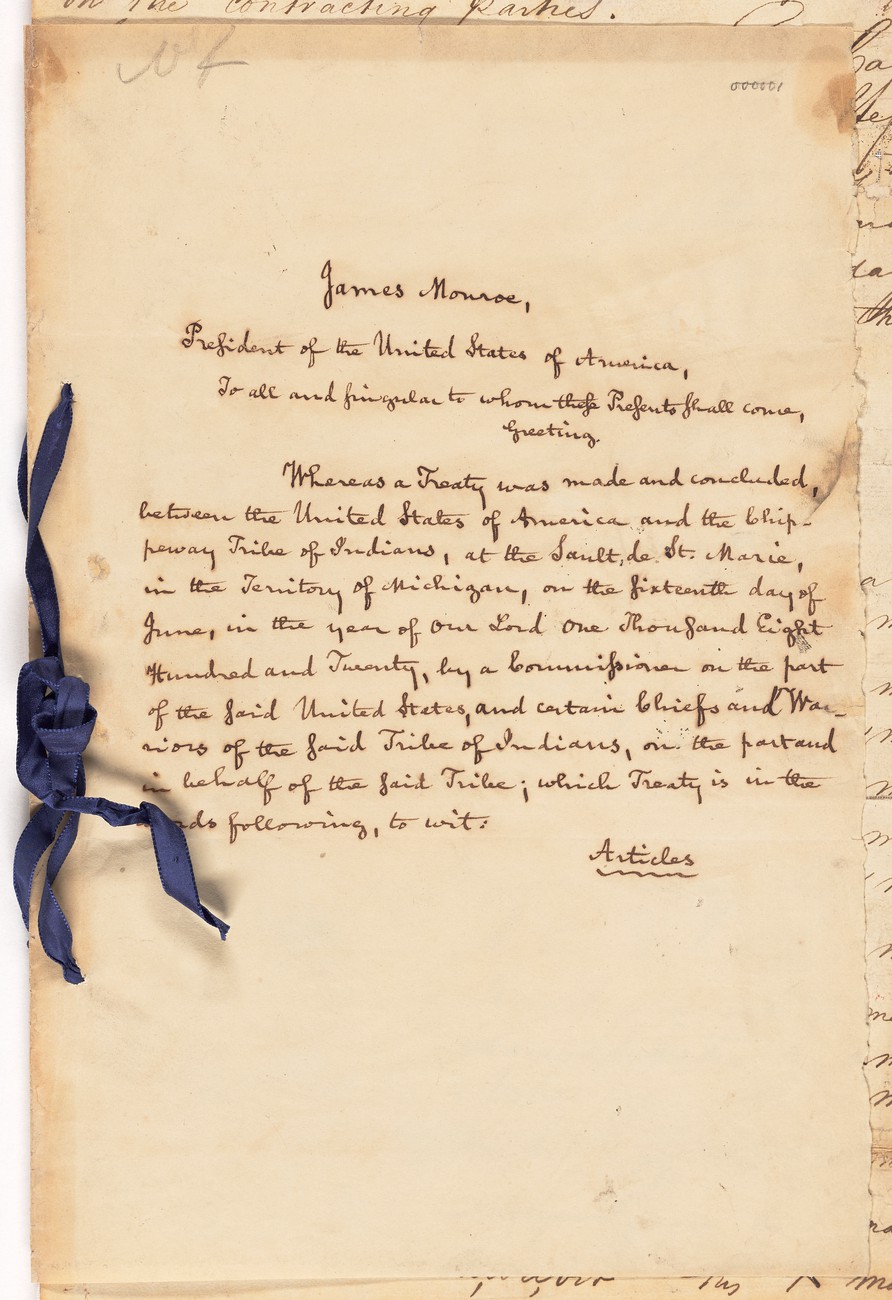 on the contracting parties.
000001
James Monroe,
President of the United States of America,
To all and singular to whom these Presents shall come,
Greeting.
Whereas a Treaty was made and concluded,
between the United States of America and the Chip-
peway Tribe of Indians, at the Sault, de St. Marie,
in the Territory of Michigan, on the sixteenth day of
June, in the year of Our Lord One Thousand Eight
Hundred and Twenty, by a Commissioner on the part
of the said United States, and certain Chiefs and War-
riors of the said Tribe of Indians, on the part and
in behalf of the said Tribe; which Treaty is in the
words following, to wit:
Articles